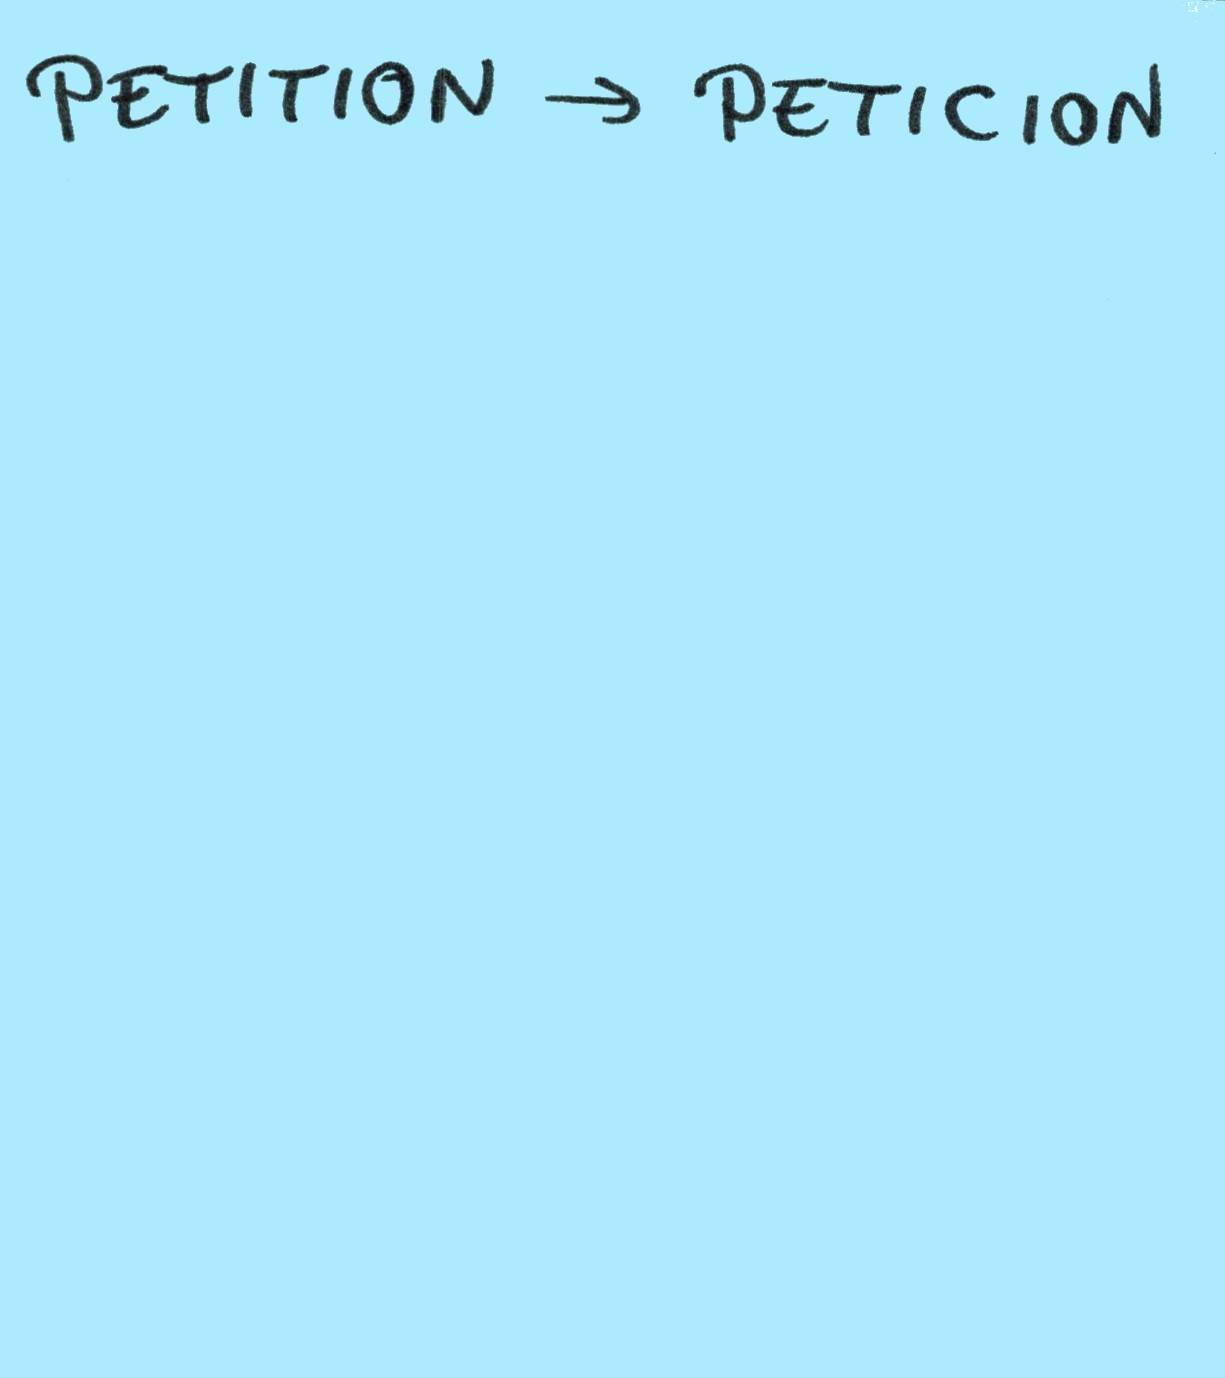 PETITION → PETICION